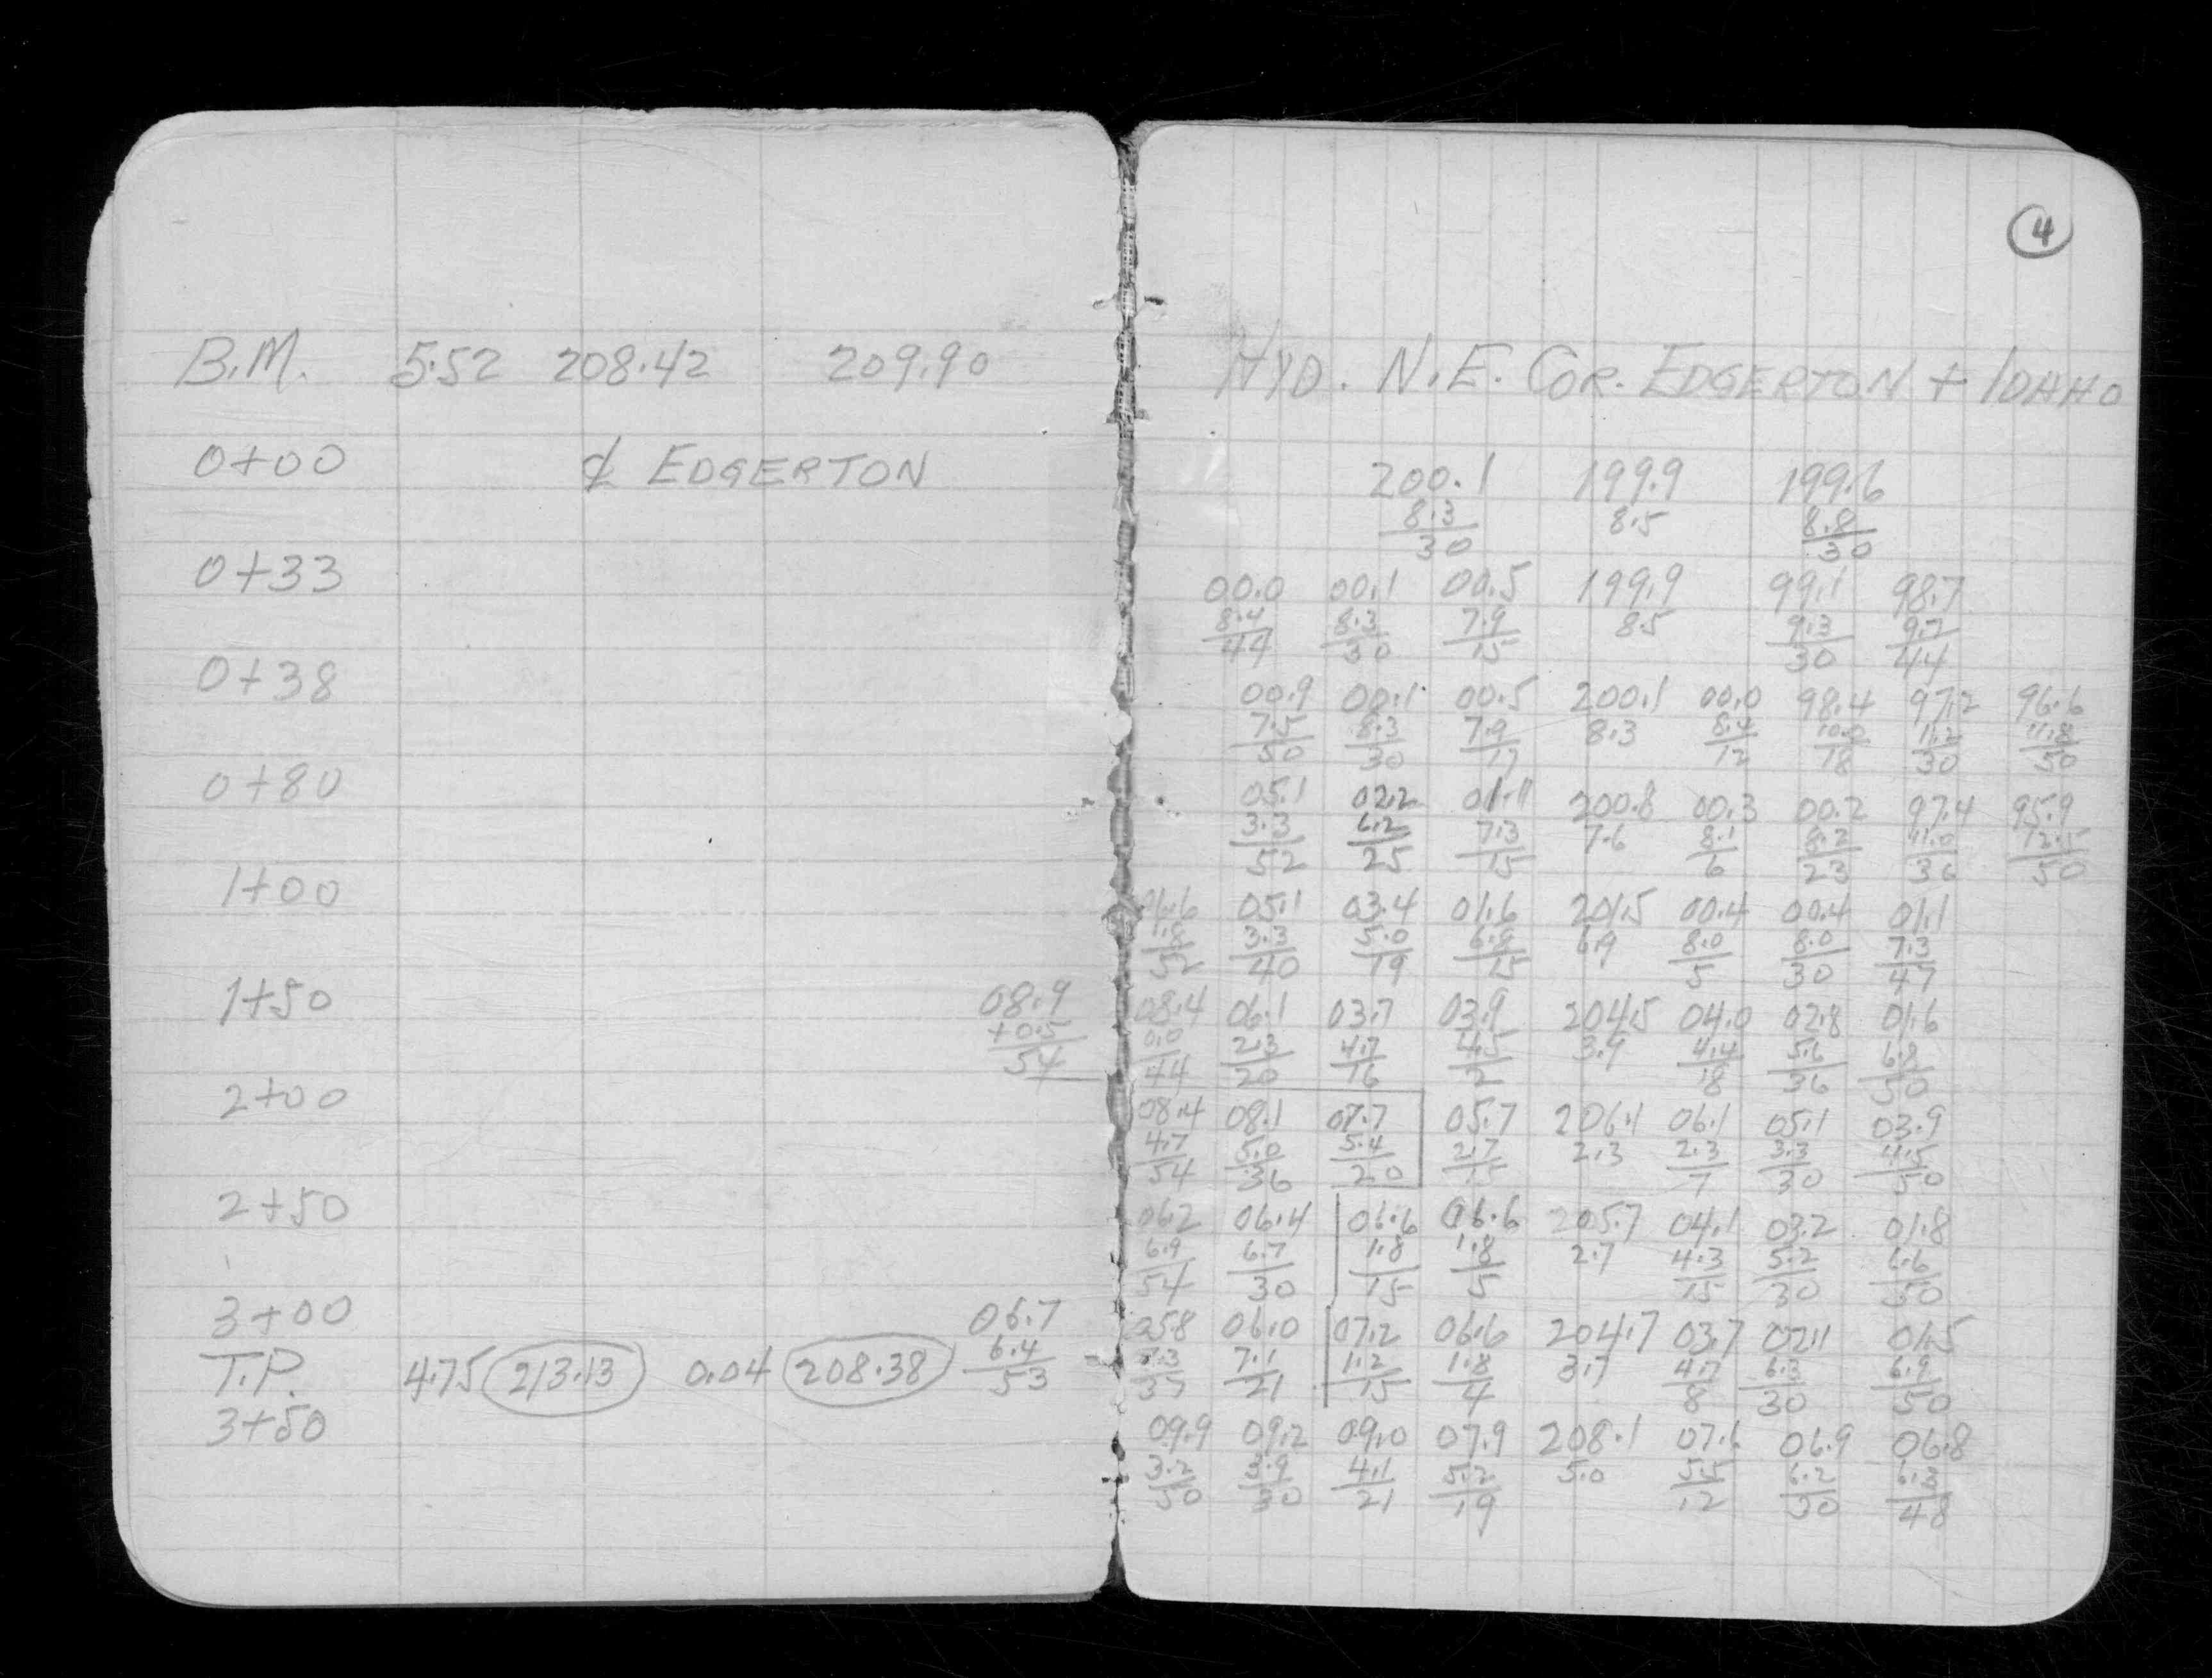 4
B.M. 5.52 208.42 209.90 HYD. N.E. COR. EDGERTON + IDAHO
0+00 ℄ EDGERTON 200.1 199.9 199.6
8.3 8.5 8.8
30 30
0+33 00.0 00.1 00.5 199.9 99.1 98.7
8.4 8.3 7.9 8.5 9.3 9.7
44 30 15 30 44
0+38 00.9 00.1 00.5 200.1 00.0 98.4 97.2 96.6
7.5 8.3 7.9 8.3 8.4 10.0 11.2 11.8
50 30 17 12 18 30 50
0+80 05.1 02.2 01.1 200.8 00.3 00.2 97.4 95.9
3.3 6.2 7.3 7.6 8.1 8.2 11.0 12.5
52 25 15 6 23 36 50
1+00 05.1 03.4 01.6 201.5 00.4 00.4 01.1
3.3 5.0 6.8 6.9 8.0 8.0 7.3
52 40 19 15 5 30 47
1+50 08.9 08.4 06.1 03.7 03.9 204.5 04.0 02.8 01.6
+0.5 0.0 2.3 4.7 4.5 3.9 4.4 5.6 6.8
54 44 20 16 2 18 36 50
2+00 08.4 08.1 07.7 05.7 206.1 06.1 05.1 03.9
4.7 5.0 5.4 2.7 2.3 2.3 3.3 4.5
54 36 20 15 7 30 50
2+50 06.2 06.4 06.6 06.6 205.7 04.1 03.2 01.8
6.9 6.7 1.8 1.8 2.7 4.3 5.2 6.6
54 30 15 5 15 30 50
3+00 06.7 05.8 06.0 07.2 06.6 204.7 03.7 02.1 01.5
T.P. 4.75 213.13 0.04 208.38 6.4 7.3 7.1 1.2 1.8 3.7 4.7 6.3 6.9
53 35 21 15 4 8 30 50
3+50 09.9 09.2 09.0 07.9 208.1 07.6 06.9 06.8
3.2 3.9 4.1 5.2 5.0 5.5 6.2 6.3
50 30 21 19 12 30 48